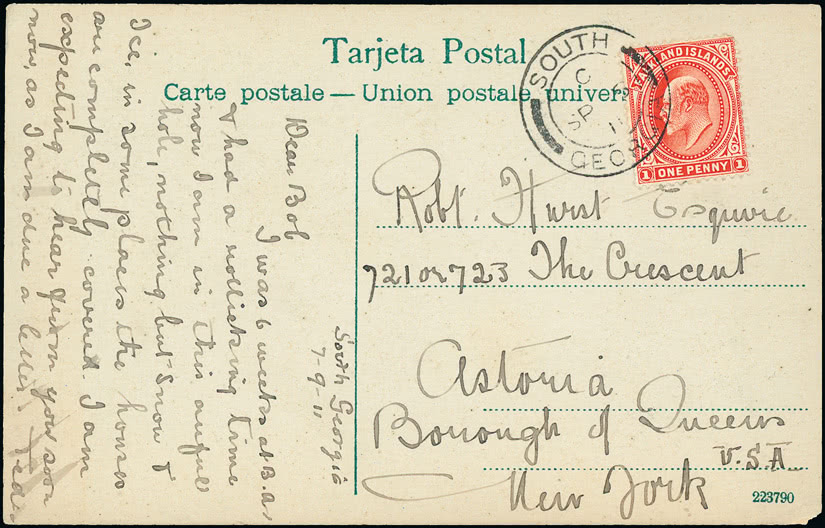 Tarjeta Postal
Carte postale — Union postale univer
SOUTH
C
SP
11
GEORGIA
FALKLAND ISLANDS
1 ONE PENNY 1
South Georgia
7-9-11
Dear Bob
I was 6 weeks at B.As
& had a rollicking time
now I am in this awful
hole, nothing but snow &
Ice, in some places the houses
are completely covered. I am
expecting to hear from you soon
now, as I am due a letter
Robt. Hurst Esquire
721 or 723 The Crescent
Astoria
Borough of Queens
New York
U.S.A
223790